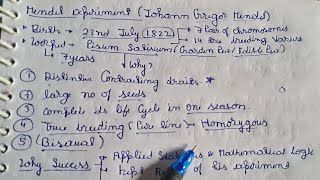 Mendel Experiment (Johann Gregor Mendel)
* Birth - 22nd July (1822) → 7 pair of chromosomes
→ 14 true breeding Varieties
Worked - Pisum Sativum (Garden Pea / Edible Pea)
↳ 7 years
↳ Why?
① Distinctive Contrasting traits. *
② large no of seeds
③ complet its life Cycle in one season.
④ True breeding (Pure line) - Homozygous
⑤ (Bisexual)
Why Success → Applied Statistics & Mathematical Logic
→ kept Record of his experiment